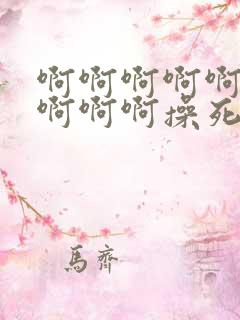 啊啊啊啊啊
啊啊啊操死
馬齊